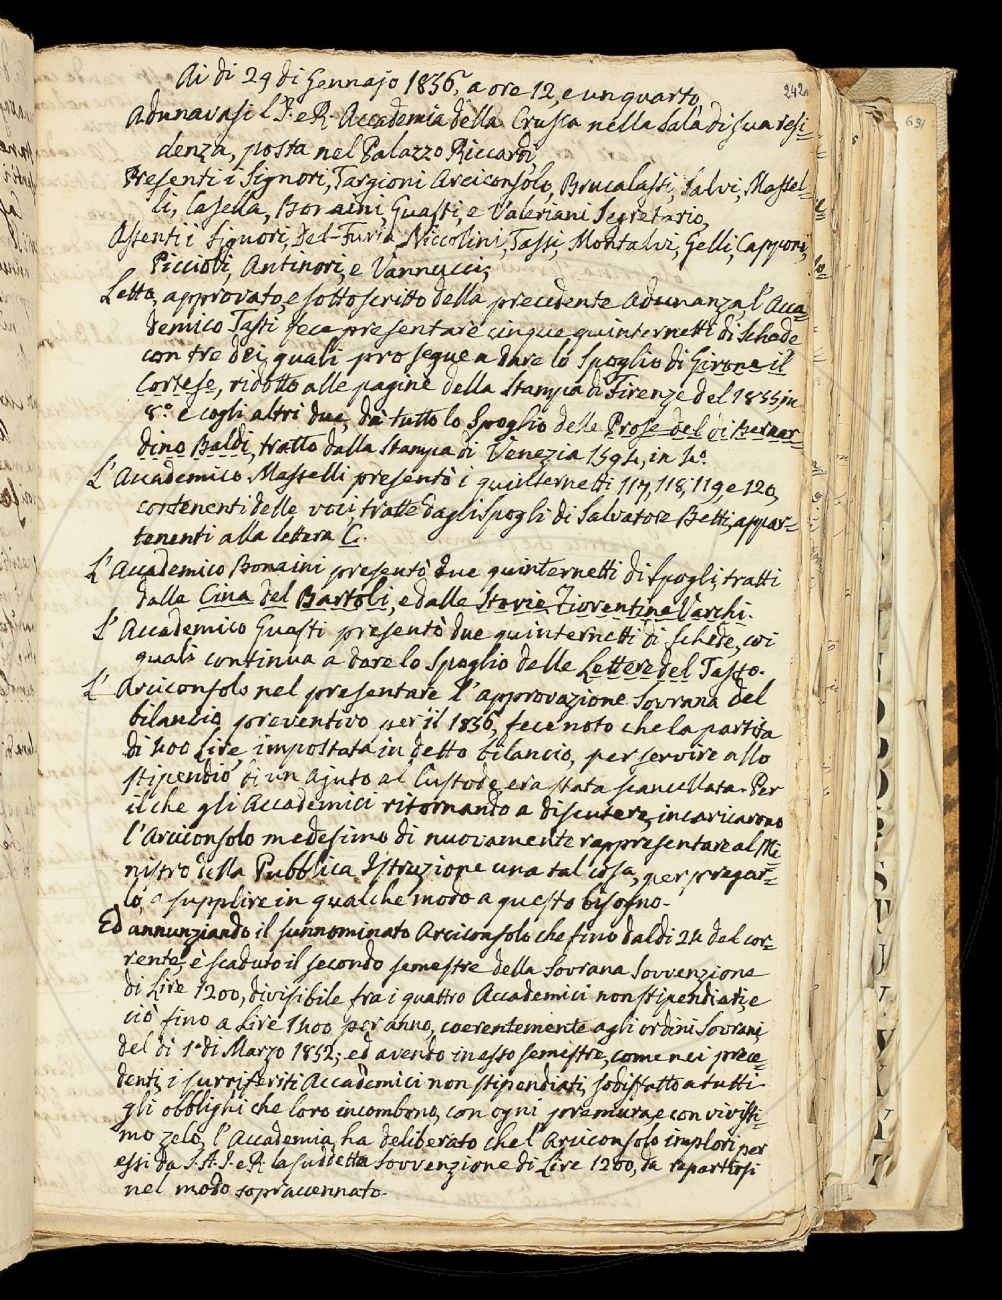 242.
Ai dì 29 di Gennajo 1856, a ore 12, e un quarto,
Adunavasi l'I. e R. Accademia della Crusca nella sala di sua resi=
denza, posta nel Palazzo Riccardi,
Presenti i Signori, Targioni Arciconsolo, Brucalassi, Salvi, Massel=
li, Casella, Bonaini, Guasti, e Valeriani Segretario,
Assenti i Signori, Del-Furia, Niccolini, Tassi, Montalvi, Gelli, Capponi,
Piccioli, Antinori, e Vannucci;
Letto, approvato, e sottoscritto della precedente Adunanza, l'Acca=
demico Tassi fece presentare cinque quinternetti di Schede
con tre dei quali prosegue a dare lo Spoglio di Girone il
Cortese, ridotto alle pagine della Stampa di Firenze del 1855, in
8.º e cogli altri due, dà tutto lo Spoglio delle Prose del di Bernar=
dino Baldi, tratto dalla Stampa di Venezia 1594, in 4.º
L'Accademico Masselli presentò i quinternetti 117, 118, 119, e 120,
contenenti delle voci tratte dagli Spogli di Salvatore Betti, appar=
tenenti alla lettera C.
L'Accademico Bonaini presentò due quinternetti di Spogli, tratti
dalla Cina del Bartoli, e dalle Storie Fiorentine Varchi.
L'Accademico Guasti presentò due quinternetti di schede, coi
quali continua a dare lo Spoglio delle Lettere del Tasso.
L'Arciconsolo nel presentare l'approvazione Sovrana del
bilancio preventivo per il 1856, fece noto che la partita
di 400 Lire, impostata in detto bilancio, per servire allo
stipendio di un Ajuto al Custode, era stata scancellata. Per
il che gli Accademici ritornando a discutere, incaricarono
l'Arciconsolo medesimo di nuovamente rappresentare al Mi=
nistro della Pubblica Istruzione una tal cosa, per pregar=
lo, a supplire in qualche modo a questo bisogno.
Ed annunziando il sunnominato Arciconsolo che fino dal dì 24 del cor=
rente, è scaduto il secondo semestre della Sovrana Sovvenzione
di Lire 1200, divisibile fra i quattro Accademici non stipendiati, e
ciò fino a Lire 1400 per anno, coerentemente agli ordini Sovrani
del dì 1º di Marzo 1852; ed avendo in esso semestre, come nei prece=
denti, i surriferiti Accademici non stipendiati, sodisfatto a tutti
gli obblighi che loro incombono, con ogni premura, e con vivissi=
mo zelo, l'Accademia ha deliberato che l'Arciconsolo implori per
essi da S. A. I. e R. la suddetta Sovvenzione di Lire 1200, da repartirsi
nel modo sopraccennato.